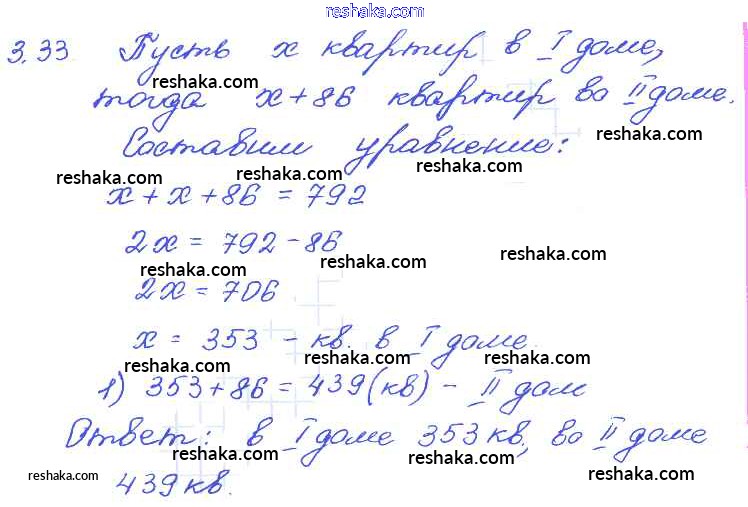 reshaka.com
3.33 Пусть x квартир в I доме,
reshaka.com reshaka.com
тогда x+86 квартир во II доме.
reshaka.com
Составим уравнение:
reshaka.com reshaka.com reshaka.com
x+x+86=792
2x=792-86
reshaka.com reshaka.com reshaka.com
2x=706
x=353 - кв. в I доме.
reshaka.com reshaka.com reshaka.com
1) 353+86=439(кв) - II дом
Ответ: в I доме 353 кв, во II доме
reshaka.com reshaka.com reshaka.com reshaka.com
439 кв.